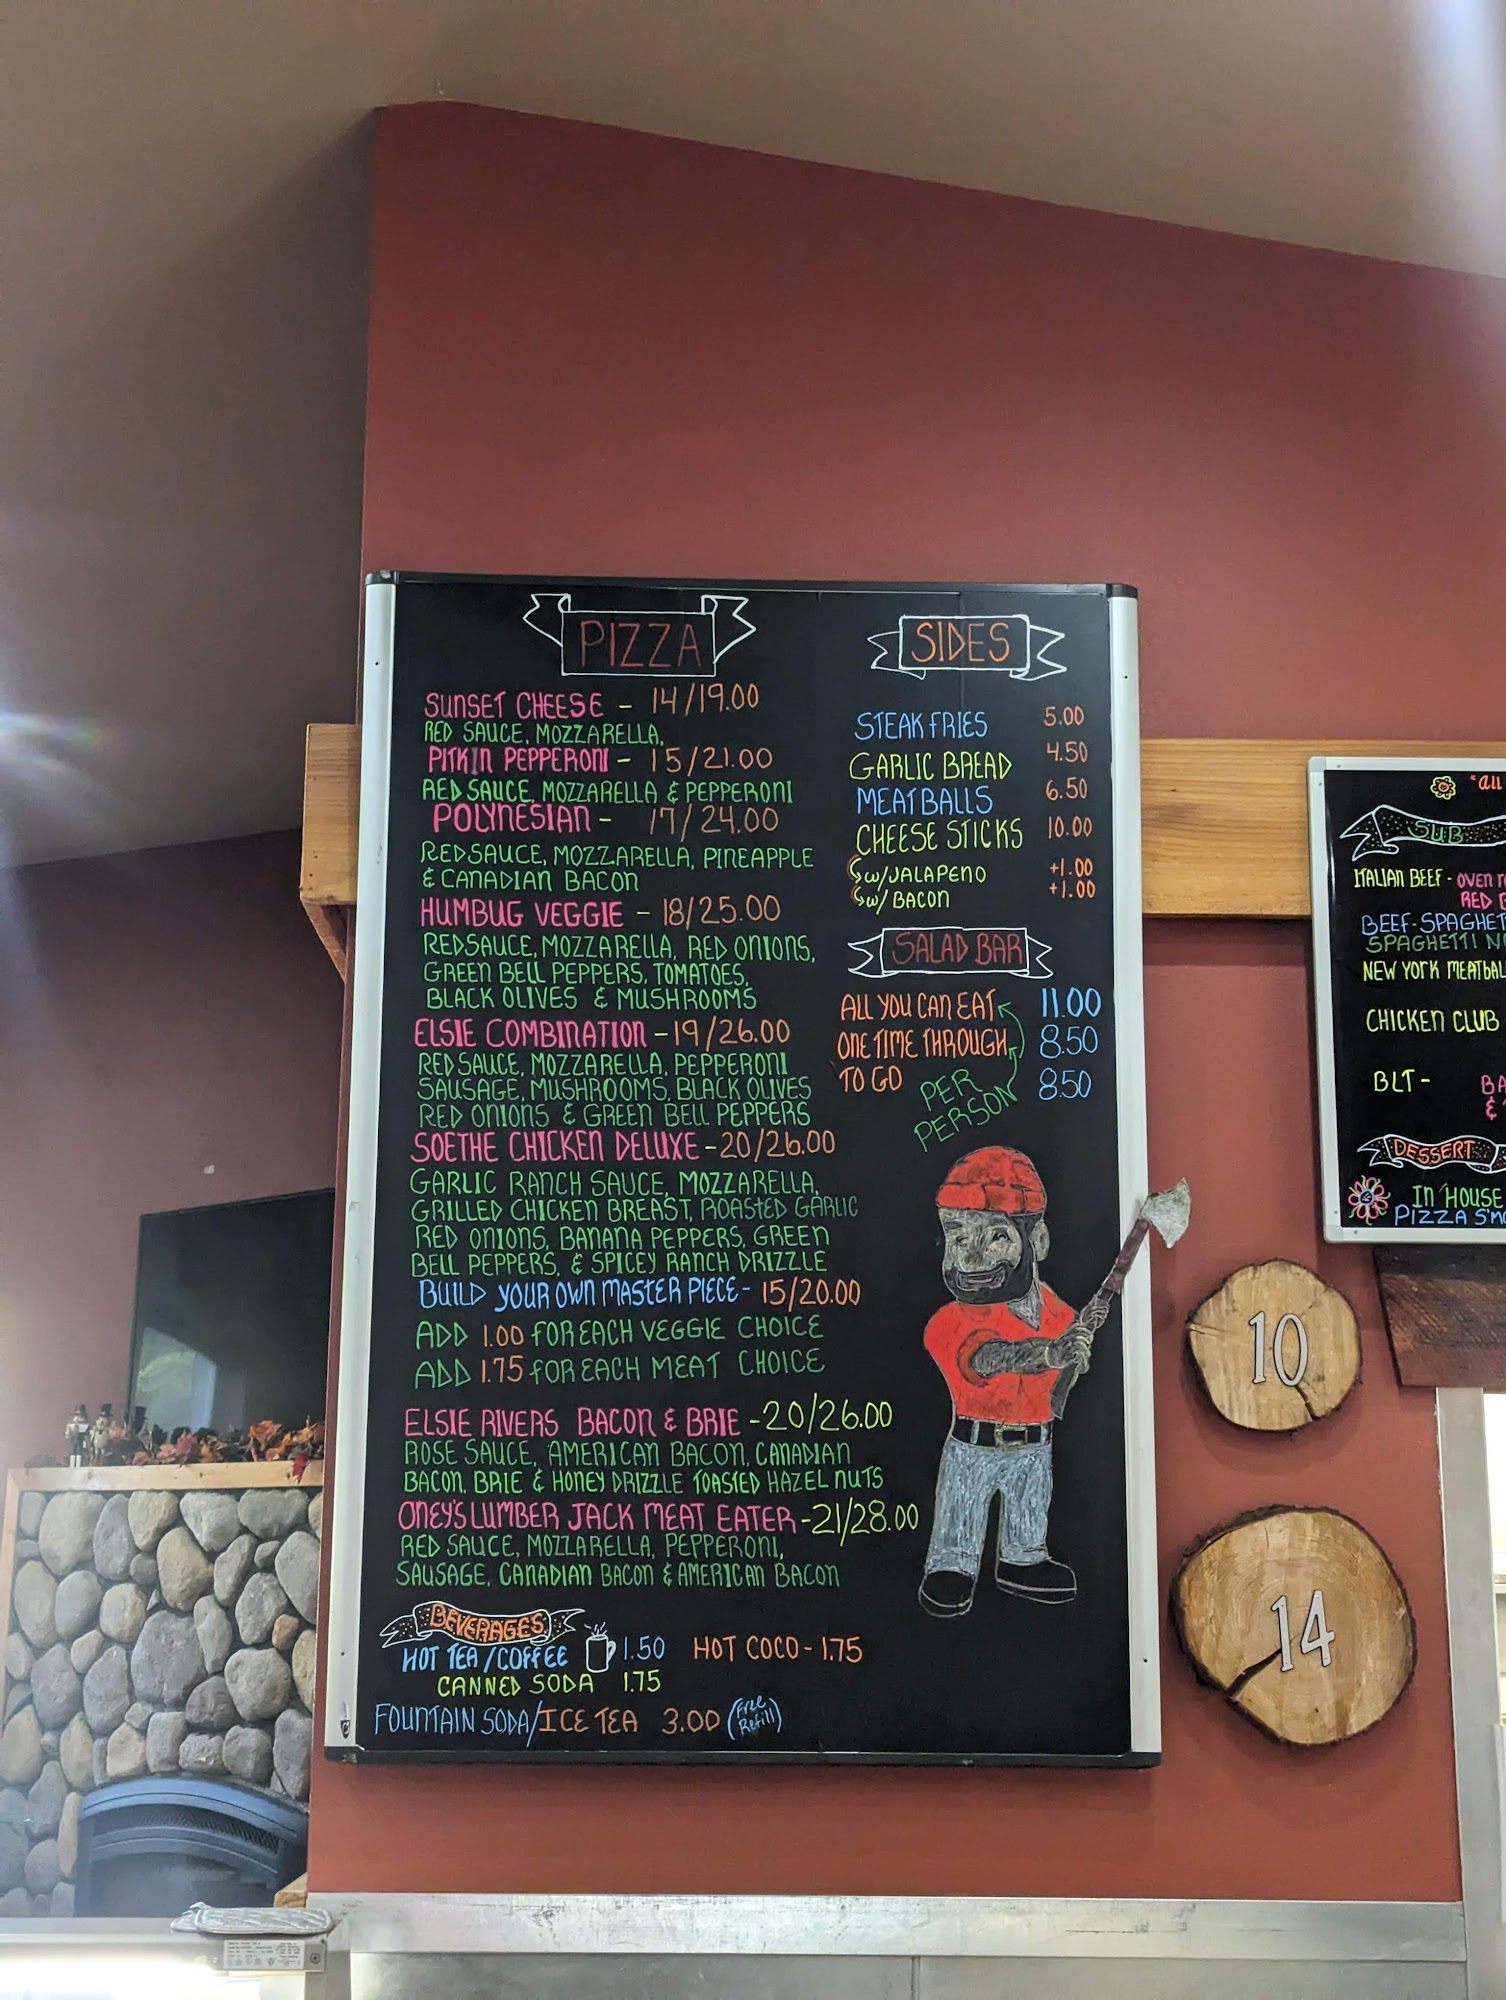 PIZZA
SUNSET CHEESE - 14/19.00
RED SAUCE, MOZZARELLA,
PITKIN PEPPERONI - 15/21.00
RED SAUCE, MOZZARELLA & PEPPERONI
POLYNESIAN - 17/24.00
RED SAUCE, MOZZARELLA, PINEAPPLE
& CANADIAN BACON
HUMBUG VEGGIE - 18/25.00
RED SAUCE, MOZZARELLA, RED ONIONS,
GREEN BELL PEPPERS, TOMATOES,
BLACK OLIVES & MUSHROOMS
ELSIE COMBINATION - 19/26.00
RED SAUCE, MOZZARELLA, PEPPERONI
SAUSAGE, MUSHROOMS, BLACK OLIVES
RED ONIONS & GREEN BELL PEPPERS
SOETHE CHICKEN DELUXE - 20/26.00
GARLIC RANCH SAUCE, MOZZARELLA,
GRILLED CHICKEN BREAST, ROASTED GARLIC
RED ONIONS, BANANA PEPPERS, GREEN
BELL PEPPERS, & SPICEY RANCH DRIZZLE
BUILD YOUR OWN MASTER PIECE - 15/20.00
ADD 1.00 FOR EACH VEGGIE CHOICE
ADD 1.75 FOR EACH MEAT CHOICE
ELSIE RIVERS BACON & BRIE - 20/26.00
ROSE SAUCE, AMERICAN BACON, CANADIAN
BACON, BRIE & HONEY DRIZZLE TOASTED HAZEL NUTS
ONEY'S LUMBER JACK MEAT EATER - 21/28.00
RED SAUCE, MOZZARELLA, PEPPERONI,
SAUSAGE, CANADIAN BACON & AMERICAN BACON
BEVERAGES
HOT TEA/COFFEE 1.50 HOT COCO - 1.75
CANNED SODA 1.75
FOUNTAIN SODA/ICE TEA 3.00 (Free Refill)
SIDES
STEAK FRIES 5.00
GARLIC BREAD 4.50
MEATBALLS 6.50
CHEESE STICKS 10.00
w/JALAPENO +1.00
w/ BACON +1.00
SALAD BAR
ALL YOU CAN EAT 11.00
ONE TIME THROUGH 8.50
TO GO 8.50
PER
PERSON
"all
SUB
ITALIAN BEEF - OVEN
RED
BEEF-
SPAGHETTI
NEW YORK
CHICKEN CLUB
BLT -
&
DESSERT
IN HOUSE
PIZZA
10
14